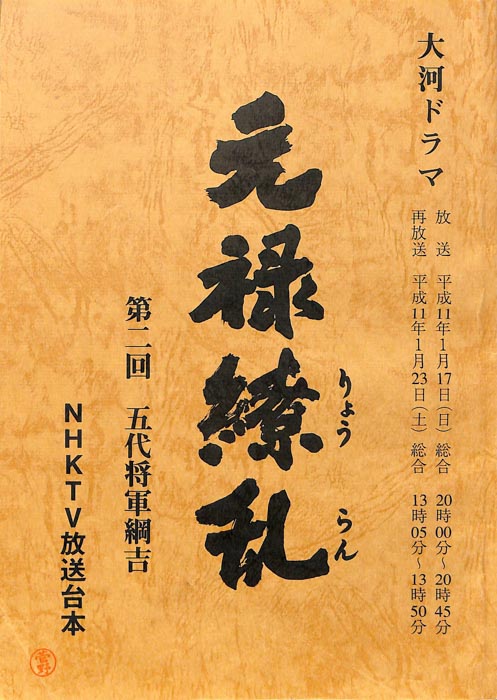 大河ドラマ
放送 平成11年1月17日(日)総合 20時00分~20時45分
再放送 平成11年1月23日(土)総合 13時05分~13時50分
元禄繚乱
りょう らん
第二回 五代将軍綱吉
NHKTV放送台本
菅野